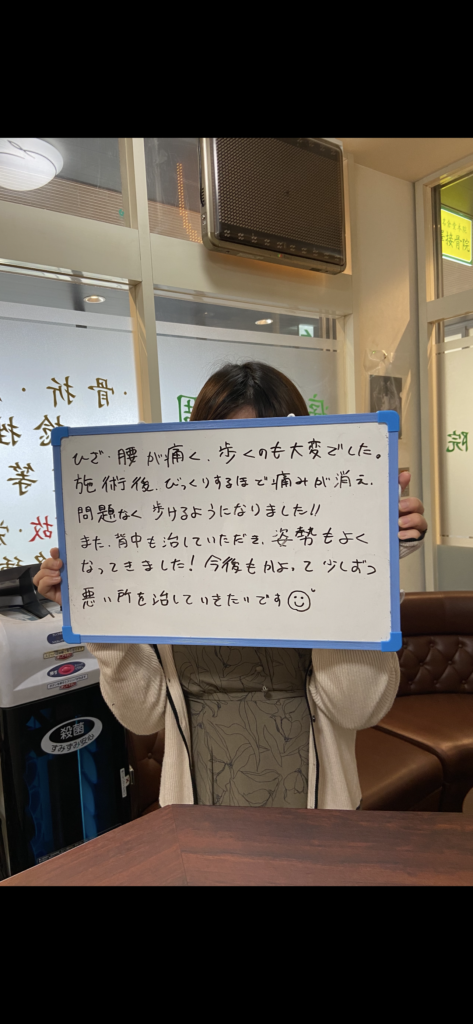 ひざ・腰が痛く、歩くのも大変でした。
施術後、びっくりするほど痛みが消え、
問題なく歩けるようになりました!!
また、背中も治していただき、姿勢もよく
なってきました！今後もかよって少しずつ
悪い所を治していきたいです
骨・折・
捻挫
等
故
院
接骨院
殺菌
すみずみまで